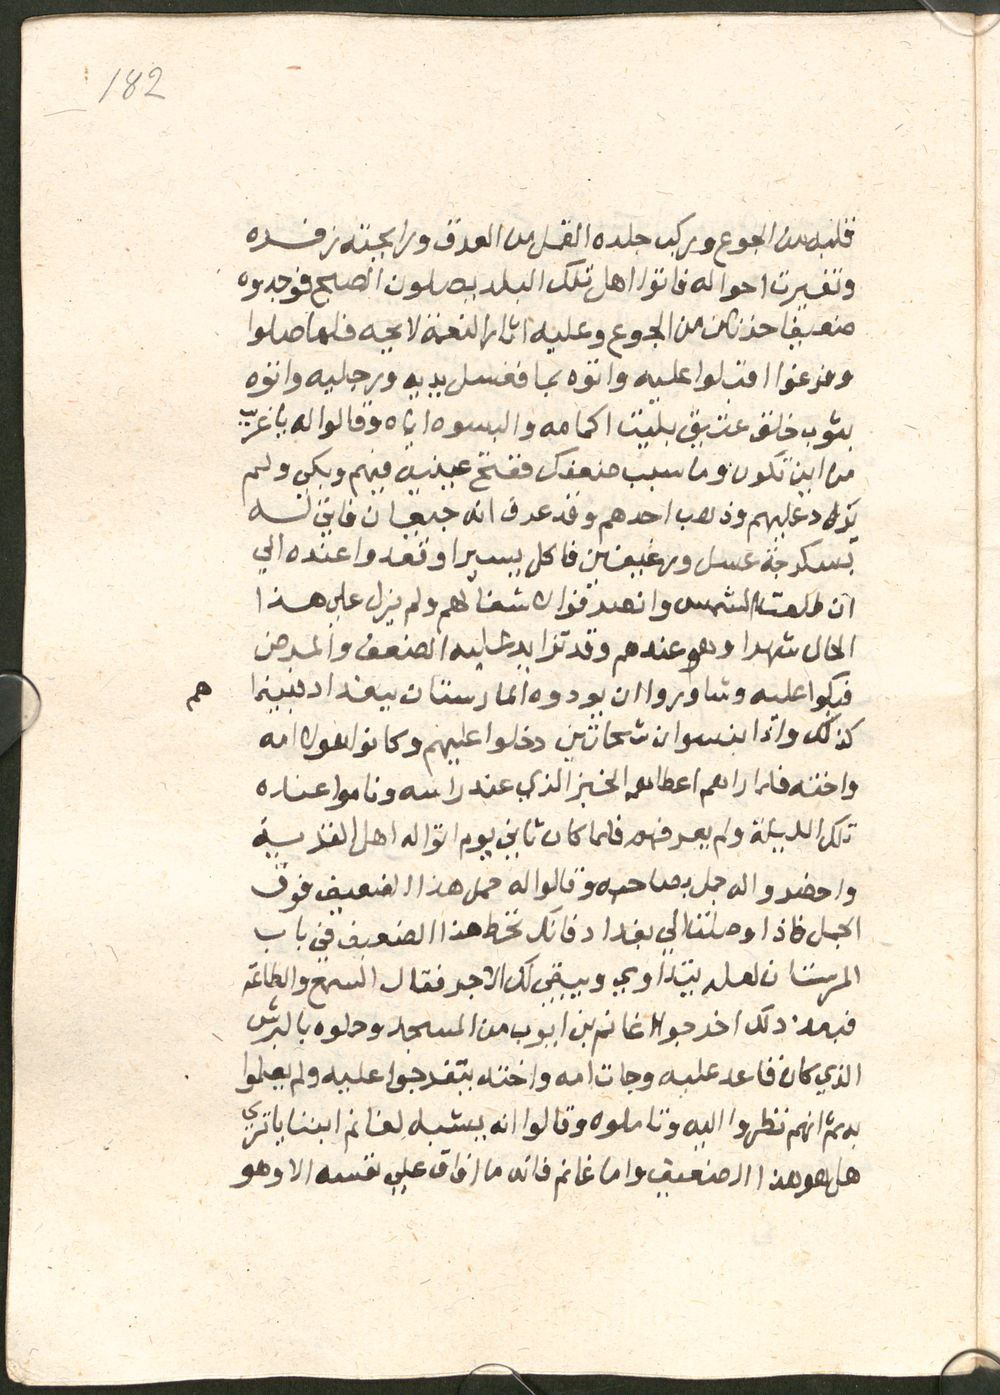 182
قلبه من الجوع وركب جلده القمل من العرق ورايحته زفره
وتغيرت احواله فاتوا اهل تلك البلد يصلون الصبح فوجدوه
ضعيفا من الجوع وعليه اثار النعمة لايحه فلما صلوا
وفرغوا اقبلوا عليه واتوه بما فغسل يديه ورجليه واتوه
بثوب خلق عتيق بليت اكمامه والبسوه اياه وقالوا له يا غريب
من اين تكون وما سبب ضعفك ففتح عينيه فيهم وبكى ولم
يرد عليهم وذهب احدهم وقد عرف انه جيعان فاتي له
بسكرجة عسل ورغيفين فاكل يسيرا وقعدوا عنده الي
ان طلعت الشمس وانصرفوا لاشغالهم ولم يزل علي هذا
الحال شهرا وهو عندهم وقد تزايد عليه الضعف والمرض
فبكوا عليه وتشاوروا ان يودوه المارستان ببغداد فبينما هم
كذلك واذا بنسوان شحاتين دخلوا عليهم وكانوا هولا امه
واخته فلما راهم اعطاهم الخبز الذي عند راسه وناموا عنده
تلك الليلة ولم يعرفهم فلما كان ثاني يوم اتوا له اهل القرية
واحضروا له جمل بصاحبه وقالوا له حمل هذا الضعيف فوق
الجمل فاذا وصلت الي بغداد فانك تحط هذا الضعيف في باب
المرستان لعله يتداوي ويبقي لك الاجر فقال السمع والطاعة
فبعد ذلك اخرجوا غانم بن ايوب من المسجد وحملوه بالبرش
الذي كان قاعد عليه وجات امه واخته يتفرجوا عليه ولم يعلموا
به ثم انهم نظروا اليه وتاملوه وقالوا انه يشبه لغانم ابننا يا تري
هل هو هذا الضعيف واما غانم فانه ما افاق علي نفسه الا وهو